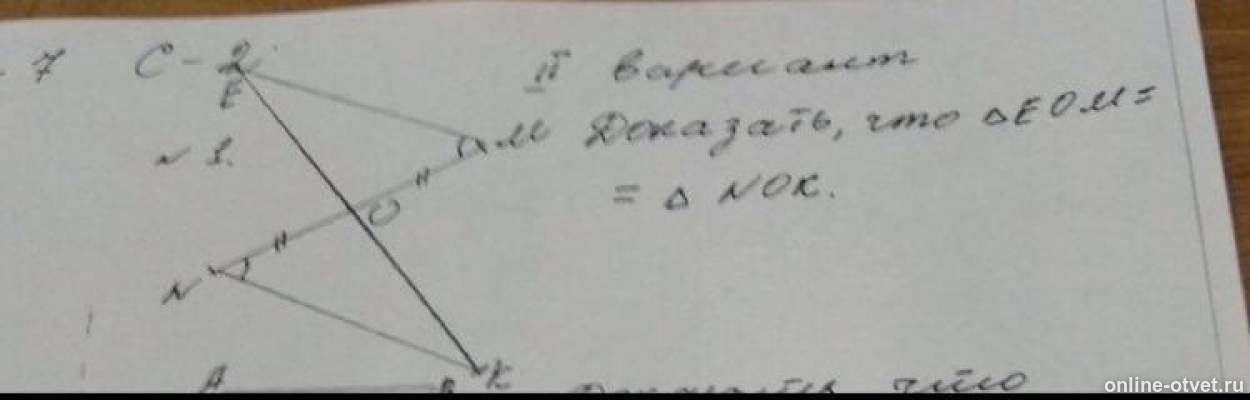 7 С-2 II вариант
E
№ 1. M Доказать, что △EOM=
= △ NOK.
O
N
K
A
что
online-otvet.ru